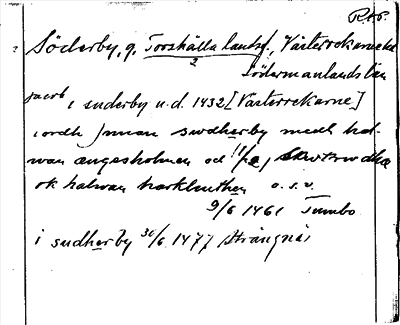 Söderby, g, Torshälla landsf., Västerrekarne hd
Södermanlands län
jacob i suderby u.d. 1432 [Västerrekarne]
i ordh jnnan swdherby medh hal-
wan ængesholmen oc
ok halwan harklinthen o.s.v.
9/6 1461 Tumbo
i sudherby 30/6 1477 Strängnäs